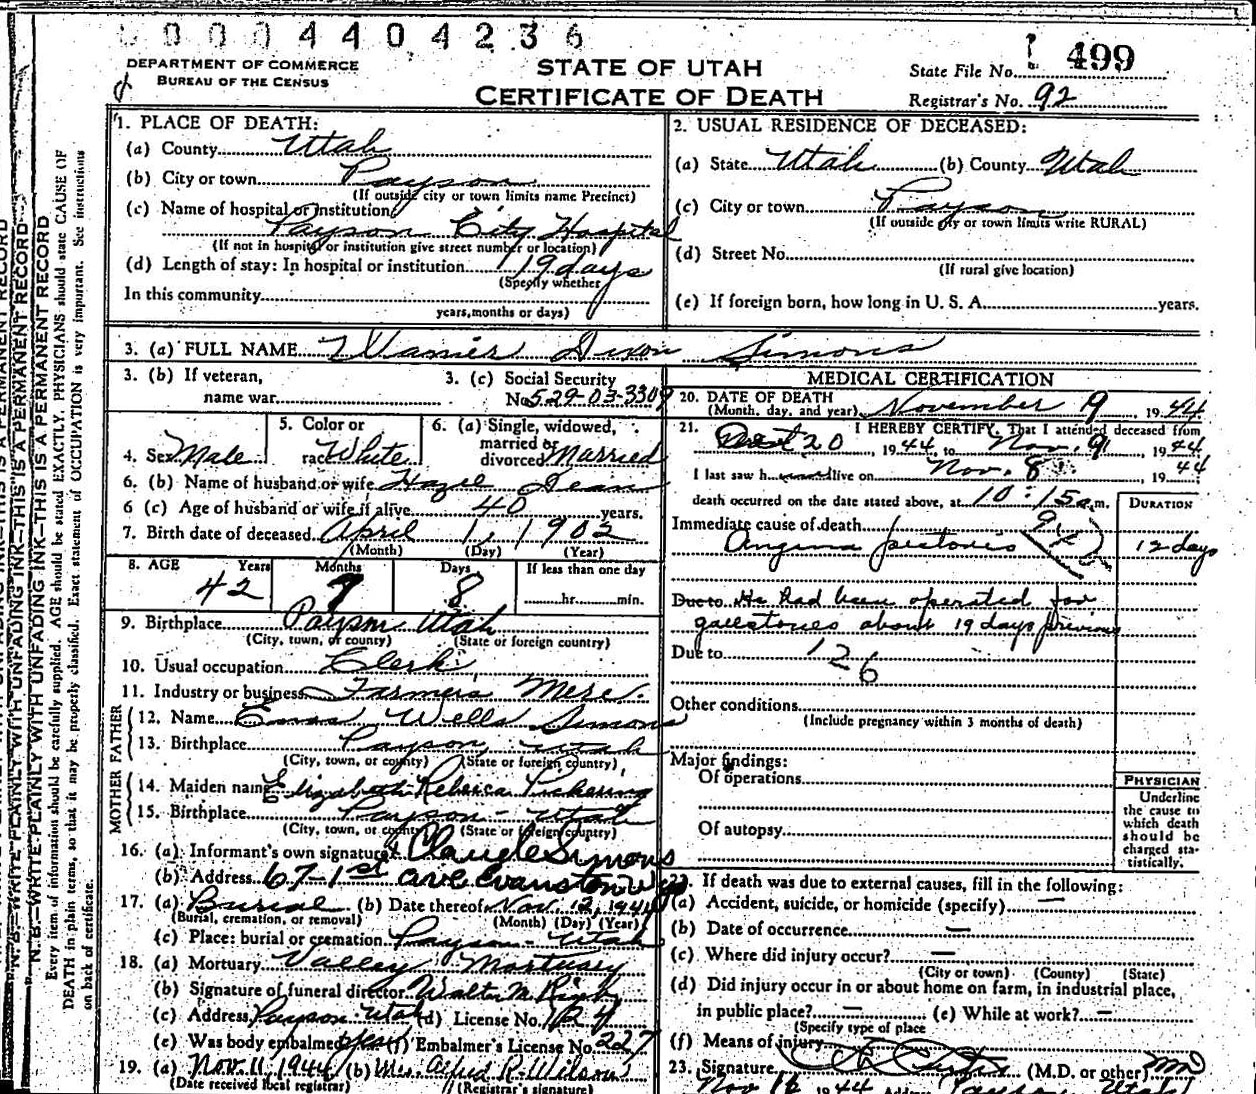 0000440 4236
DEPARTMENT OF COMMERCE
BUREAU OF THE CENSUS
STATE OF UTAH
CERTIFICATE OF DEATH
State File No. 499
Registrar's No. 92
1. PLACE OF DEATH:
(a) County Utah
(b) City or town Payson
(If outside city or town limits name Precinct)
(c) Name of hospital or institution
Payson City Hospital
(If not in hospital or institution give street number or location)
(d) Length of stay: In hospital or institution 19 days
(Specify whether
In this community
years, months or days)
2. USUAL RESIDENCE OF DECEASED:
(a) State Utah (b) County Utah
(c) City or town Payson
(If outside city or town limits write RURAL)
(d) Street No.
(If rural give location)
(e) If foreign born, how long in U. S. A. years.
3. (a) FULL NAME Dixon Simons
3. (b) If veteran,
name war
3. (c) Social Security
No. 529-03-3309
4. Sex Male
5. Color or
race White
6. (a) Single, widowed,
married or
divorced Married
6. (b) Name of husband or wife Hazel Dean
6 (c) Age of husband or wife if alive 40 years.
7. Birth date of deceased April 1, 1902
(Month) (Day) (Year)
8. AGE Years Months Days If less than one day
42 7 8 hr. min.
9. Birthplace Payson Utah
(City, town, or county) (State or foreign country)
10. Usual occupation Clerk
11. Industry or business Farmers Merc.
FATHER
12. Name Wells Simons
13. Birthplace Payson, Utah
(City, town, or county) (State or foreign country)
MOTHER
14. Maiden name Elizabeth Rebecca Pickering
15. Birthplace Payson - Utah
(City, town, or county) (State or foreign country)
16. (a) Informant's own signature Claude Simons
(b) Address 67-1st ave Evanston Wyo
17. (a) Burial (b) Date thereof Nov. 12, 1944
(Burial, cremation, or removal) (Month) (Day) (Year)
(c) Place: burial or cremation Payson - Utah
18. (a) Mortuary Valley Mortuary
(b) Signature of funeral director Walter M. Rigby
(c) Address Payson - Utah (d) License No. 124
(e) Was body embalmed yes (f) Embalmer's License No. 227
19. (a) Nov. 11, 1944 (b) Mrs. Alfred R. Wilson
(Date received local registrar) (Registrar's signature)
MEDICAL CERTIFICATION
20. DATE OF DEATH
(Month, day, and year) November 9, 1944
21. I HEREBY CERTIFY, That I attended deceased from
Oct 20, 1944, to Nov. 9, 1944
I last saw h alive on Nov. 8, 1944
death occurred on the date stated above, at 10:15 a.m.
DURATION
Immediate cause of death
Angina pectoris 12 days
Due to He had been operated for
gallstones about 19 days previous
Due to 126
Other conditions
(Include pregnancy within 3 months of death)
Major findings:
Of operations
Of autopsy
PHYSICIAN
Underline
the cause to
which death
should be
charged sta-
tistically.
22. If death was due to external causes, fill in the following:
(a) Accident, suicide, or homicide (specify) —
(b) Date of occurrence —
(c) Where did injury occur? —
(City or town) (County) (State)
(d) Did injury occur in or about home on farm, in industrial place,
in public place? — (e) While at work? —
(Specify type of place
(f) Means of injury
23. Signature (M.D. or other) MD
Nov 16 1944 Address Payson Utah
N. B.—WRITE PLAINLY WITH UNFADING INK—THIS IS A PERMANENT RECORD
Every item of information should be carefully supplied. AGE should be stated EXACTLY. PHYSICIANS should state CAUSE OF
DEATH in plain terms, so that it may be properly classified. Exact statement of OCCUPATION is very important. See instructions
on back of certificate.